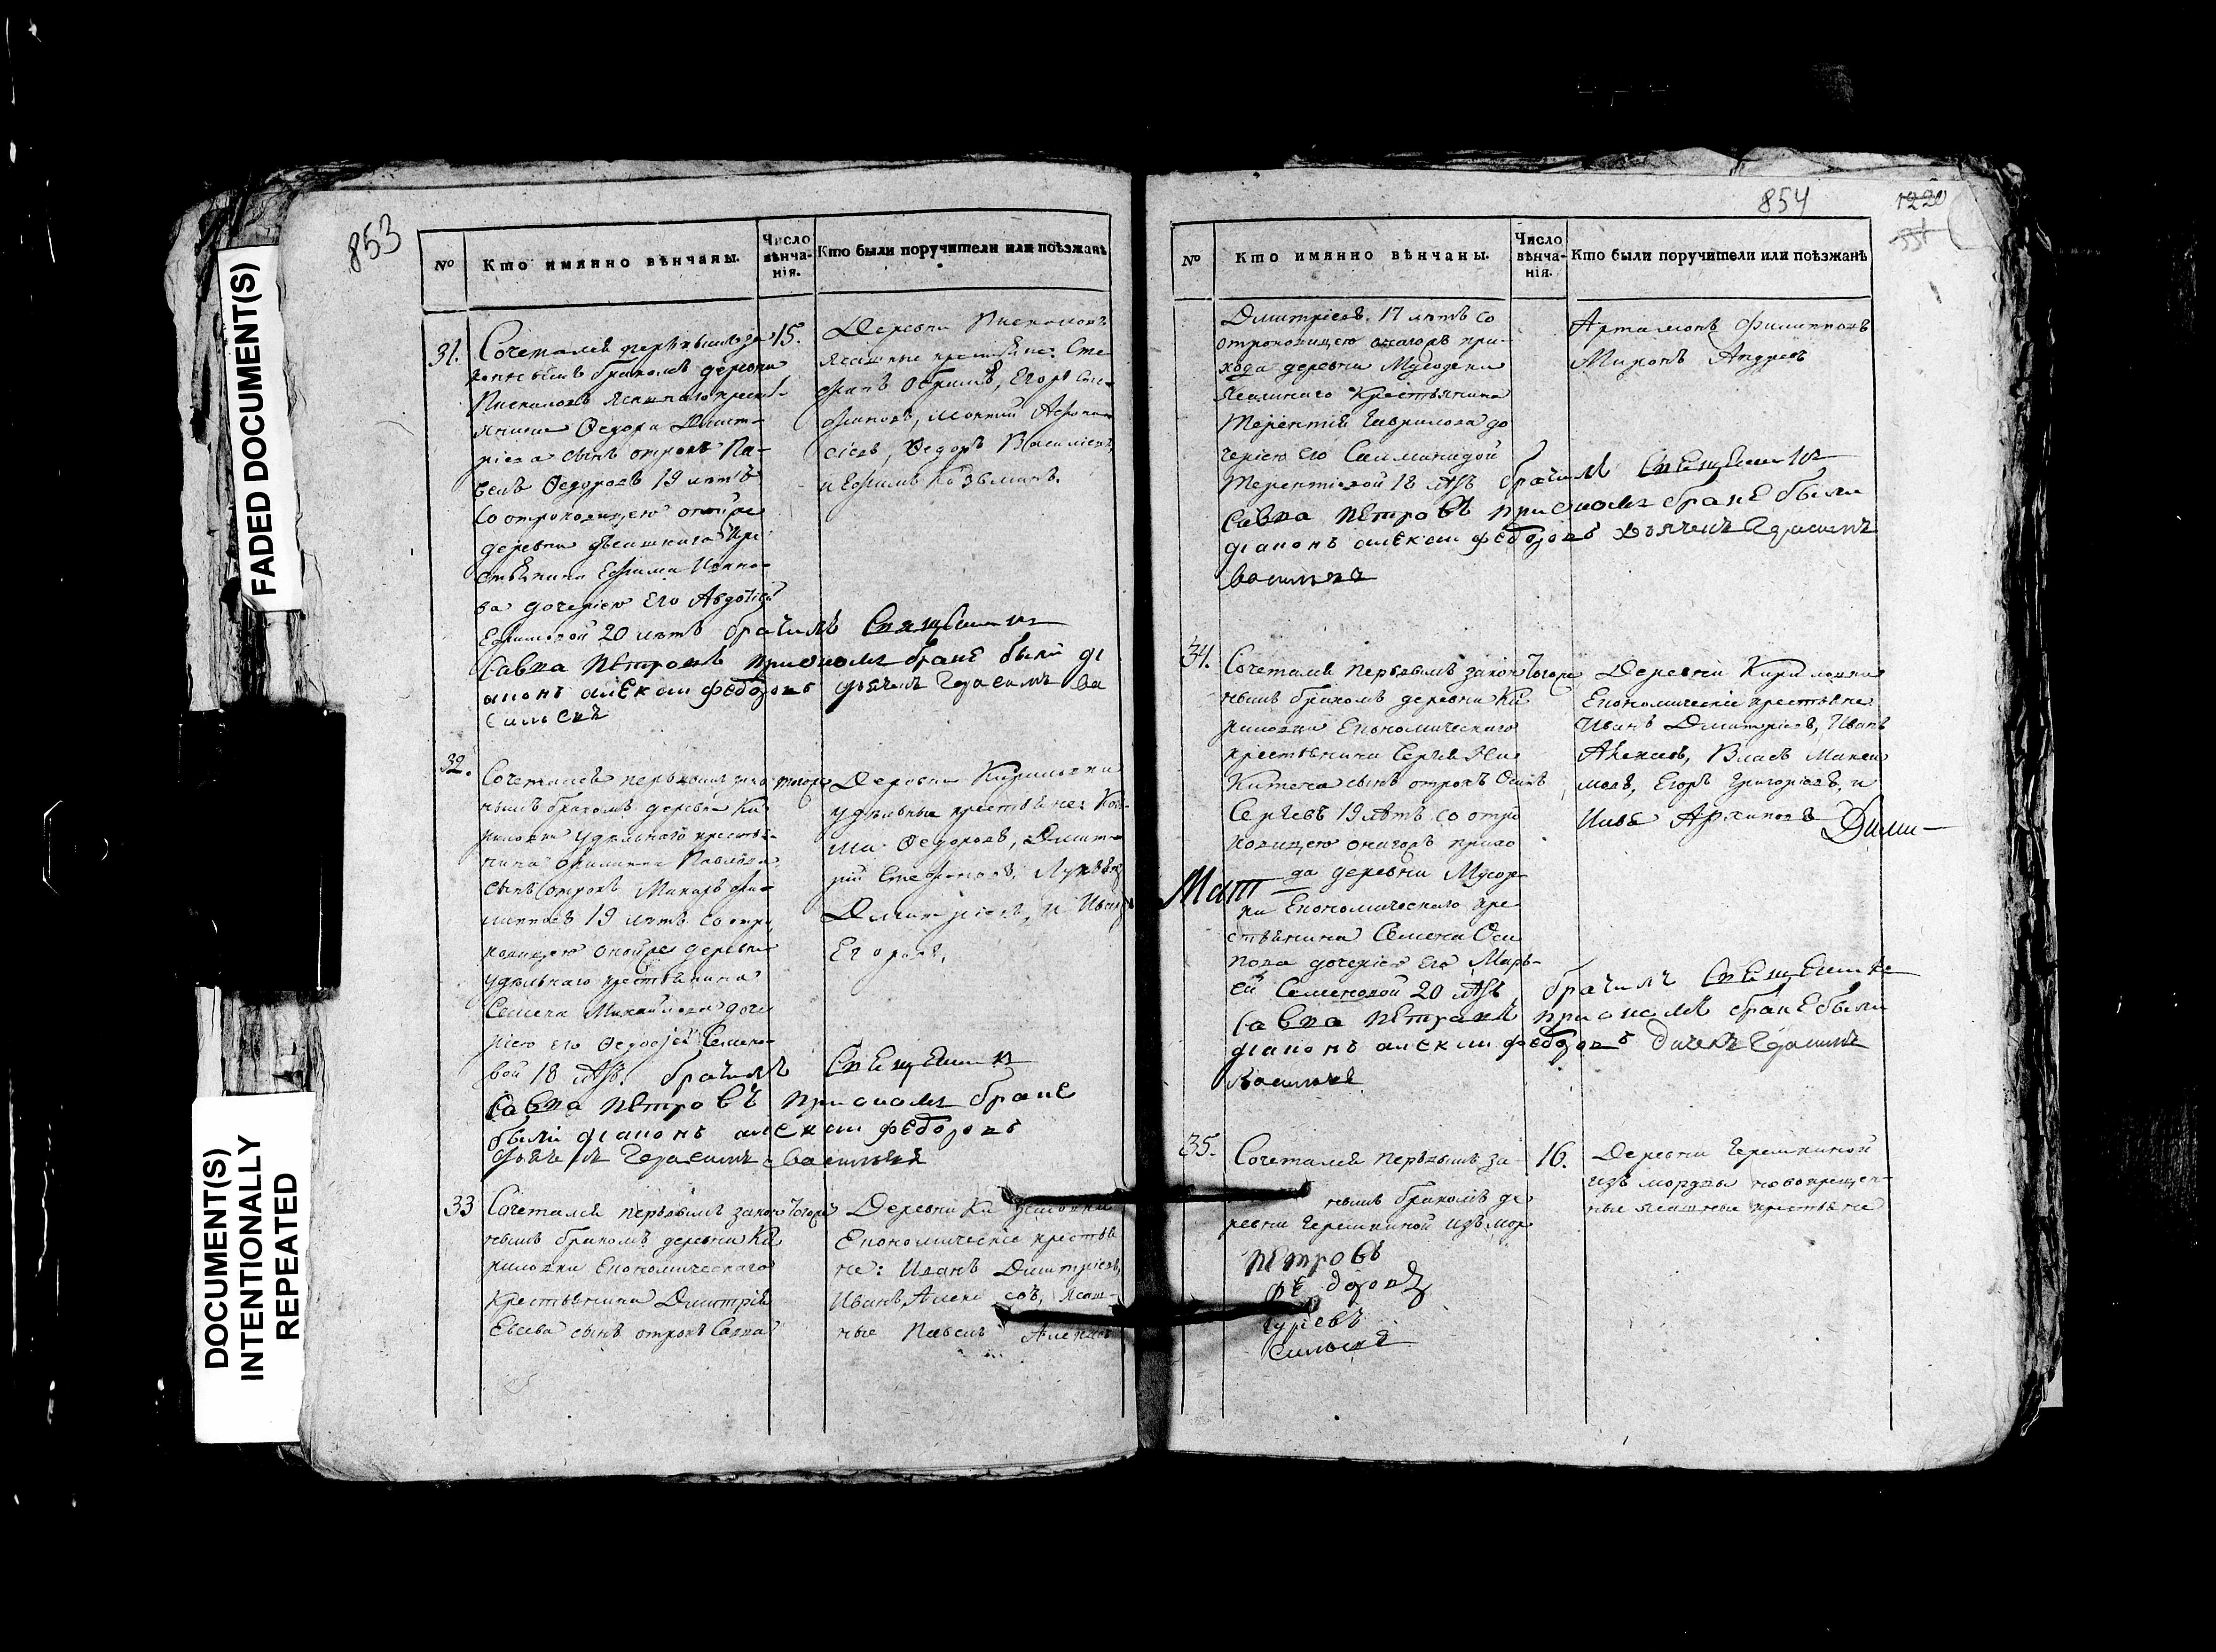 FADED DOCUMENT(S)
DOCUMENT(S)
INTENTIONALLY
REPEATED
853
№
Кто имянно вѣнчаны.
Число
вѣнча-
нія.
Кто были поручители или поѣзжанѣ
31.
Сочетался первымъ за-
коннымъ бракомъ деревни
ясашнаго кресть-
янина Ѳедора Дмит-
ріева сынъ отрокъ Па-
велъ Ѳедоровъ 19 лѣтъ
со отроковицею
деревни ясашнаго кре
стьянина Ефима Ивано-
ва дочерію его Авдотіей
Ефимовой 20 лѣтъ брачилъ Священникъ
Савва Петровъ при ономъ браке были ді
аконъ алексеи федоровъ дьячекъ Герасимъ Ва
сильевъ
15.
Деревни
ясашные крестьяне: Сте
фанъ Ефимъ, Егоръ Сте-
фановъ, Афана-
сіевъ, Ѳедоръ Василіевъ,
и Ефимъ Козьминъ.
32.
Сочетался первымъ зако
ннымъ бракомъ деревни Ки
риловки удѣльнаго кресть-
янина Филиппа Павлова
сынъ отрокъ Макаръ Фи-
липповъ 19 лѣтъ со отро
ковицею оной же деревни
удѣльнаго крестьянина
Семена Михайлова доче
рію его Ѳедосіей Семено-
вой 18 лѣтъ. брачилъ Священникъ
Савва Петровъ при ономъ браке
были діаконъ алексеи федоровъ
дьячекъ Герасимъ Васильевъ
тогоже
Деревни Кириловки
удѣльные крестьяне:
Ѳедоровъ, Дмит-
рій Стефановъ,
Дмитріевъ, и Иванъ
Егоровъ.
33
Сочетался первымъ закон
нымъ бракомъ деревни Ки
риловки Економическаго
крестьянина Дмитрія
Евсева сынъ отрокъ Савва
тогоже
Деревни Кириловки
Економическіе крестья
не: Иванъ Дмитріевъ,
Иванъ Алексѣевъ, ясаш-
ные Павелъ
854
1220
№
Кто имянно вѣнчаны.
Число
вѣнча-
нія.
Кто были поручители или поѣзжанѣ
Дмитріевъ. 17 лѣтъ со
отроковицею онагожъ при-
хода деревни Мусорки
ясашнаго крестьянина
Терентія Гаврилова до
черію его Саломанидой
Терентіевой 18 лѣтъ брачилъ Священникъ
Савва Петровъ при ономъ браке были
діаконъ алексеи федоровъ дьячекъ Герасимъ
Васильевъ
Артамонъ Филипповъ
Миронъ Андреевъ
34.
Сочетался первымъ закон
нымъ бракомъ деревни Ки
риловки Економическаго
крестьянина Сергея Ни
китина сынъ отрокъ Осипъ
Сергѣевъ 19 лѣтъ со отро
ковицею онагожъ прихо
да деревни Мусор-
ки Економическаго кре
стьянина Семена Оси
пова дочерію его Марь-
ей Семеновой 20 лѣтъ брачилъ Священникъ
Савва Петровъ при ономъ браке были
діаконъ алексеи федоровъ дьячекъ Герасимъ
Васильевъ
тогоже
Деревни Кириловки
Економическіе крестьяне
Иванъ Дмитріевъ, Иванъ
Алексеевъ, Власъ Макси
мовъ, Егоръ Григорьевъ, и
Архиповъ
35.
Сочетался первымъ за-
ннымъ бракомъ де
ревни Черемкиной изъ мор
16.
Деревни Черемкиной
изъ мордвы новокрещен-
ные ясашные крестьяне
Петровъ
федоровъ
сильевъ